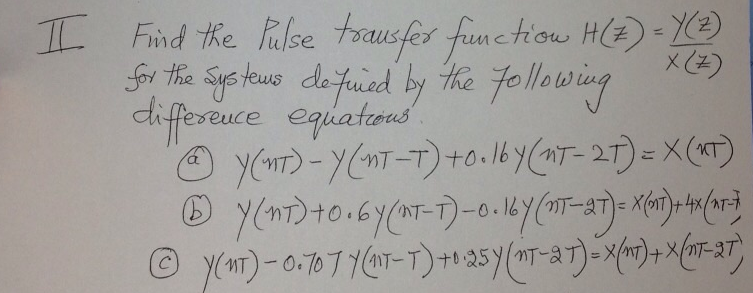 II Find the Pulse transfer function H(Z) = Y(Z)/X(Z)
for the systems defined by the following
difference equations.
(a) Y(nT) - Y(nT-T) + 0.16Y(nT-2T) = X(nT)
(b) Y(nT) + 0.6Y(nT-T) - 0.16Y(nT-2T) = X(nT) + 4X(nT-T)
(c) Y(nT) - 0.707Y(nT-T) + 0.25Y(nT-2T) = X(nT) + X(nT-2T)